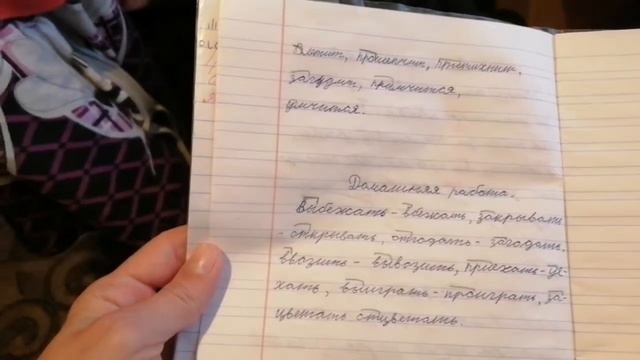 загудит, промчится,
умчится.
Домашняя работа.
Выбежать - вбежать, закрывать
- открывать, отгадать - загадать,
ввозить - вывозить, приехать - уе-
хать, выиграть - проиграть, за-
цветать отцветать.